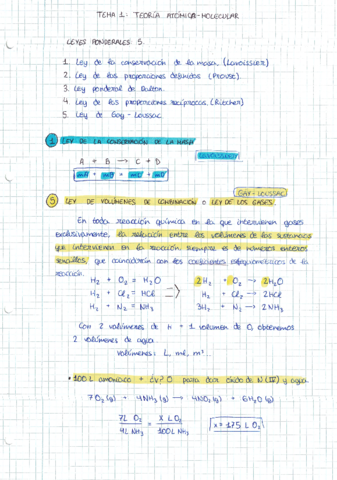 TEMA 1: TEORÍA ATÓMICA-MOLECULAR
LEYES PONDERALES 5.
1. Ley de la conservación de la masa. (Lavoissier)
2. Ley de las proporciones definidas (Proust).
3. Ley ponderal de Dalton.
4. Ley de las proporciones recíprocas. (Riecher)
5. Ley de Gay-Loussac.
1 LEY DE LA CONSERVACIÓN DE LA MASA
LAVOISSIER
A + B → C + D
mA + mB = mC + mD
GAY-LOUSSAC
5 LEY DE VOLÚMENES DE COMBINACIÓN o LEY DE LOS GASES.
En toda reacción química en la que intervienen gases
exclusivamente, la relación entre los volúmenes de las sustancias
que intervienen en la reacción siempre es de números enteros
sencillos, que coincidirán con los coeficientes estequiométricos de la
reacción.
H₂ + O₂ = H₂O 2H₂ + O₂ → 2H₂O
H₂ + Cl₂ = HCl => H₂ + Cl₂ → 2HCl
H₂ + N₂ = NH₃ 3H₂ + N₂ → 2NH₃
Con 2 volúmenes de H + 1 volumen de O obtenemos
2 volúmenes de agua.
volúmenes: L, ml, m³.
• 100 L amoniaco + ¿V? O para dar óxido de N (IV) y agua.
7O₂(g) + 4NH₃(g) → 4NO₂(g) + 6H₂O(g)
7L O₂ / 4L NH₃ = x L O₂ / 100L NH₃ x = 175 L O₂